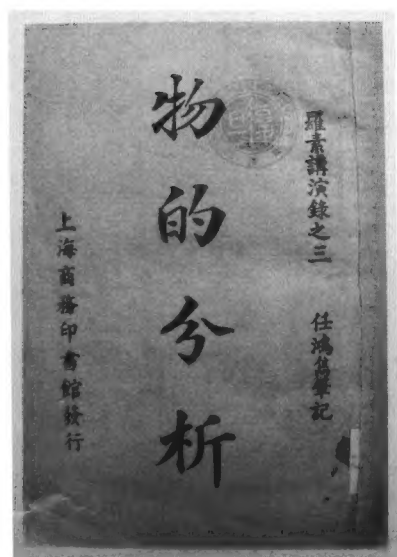 羅素講演錄之三
任鴻雋筆記
物的分析
上海商務印書館發行